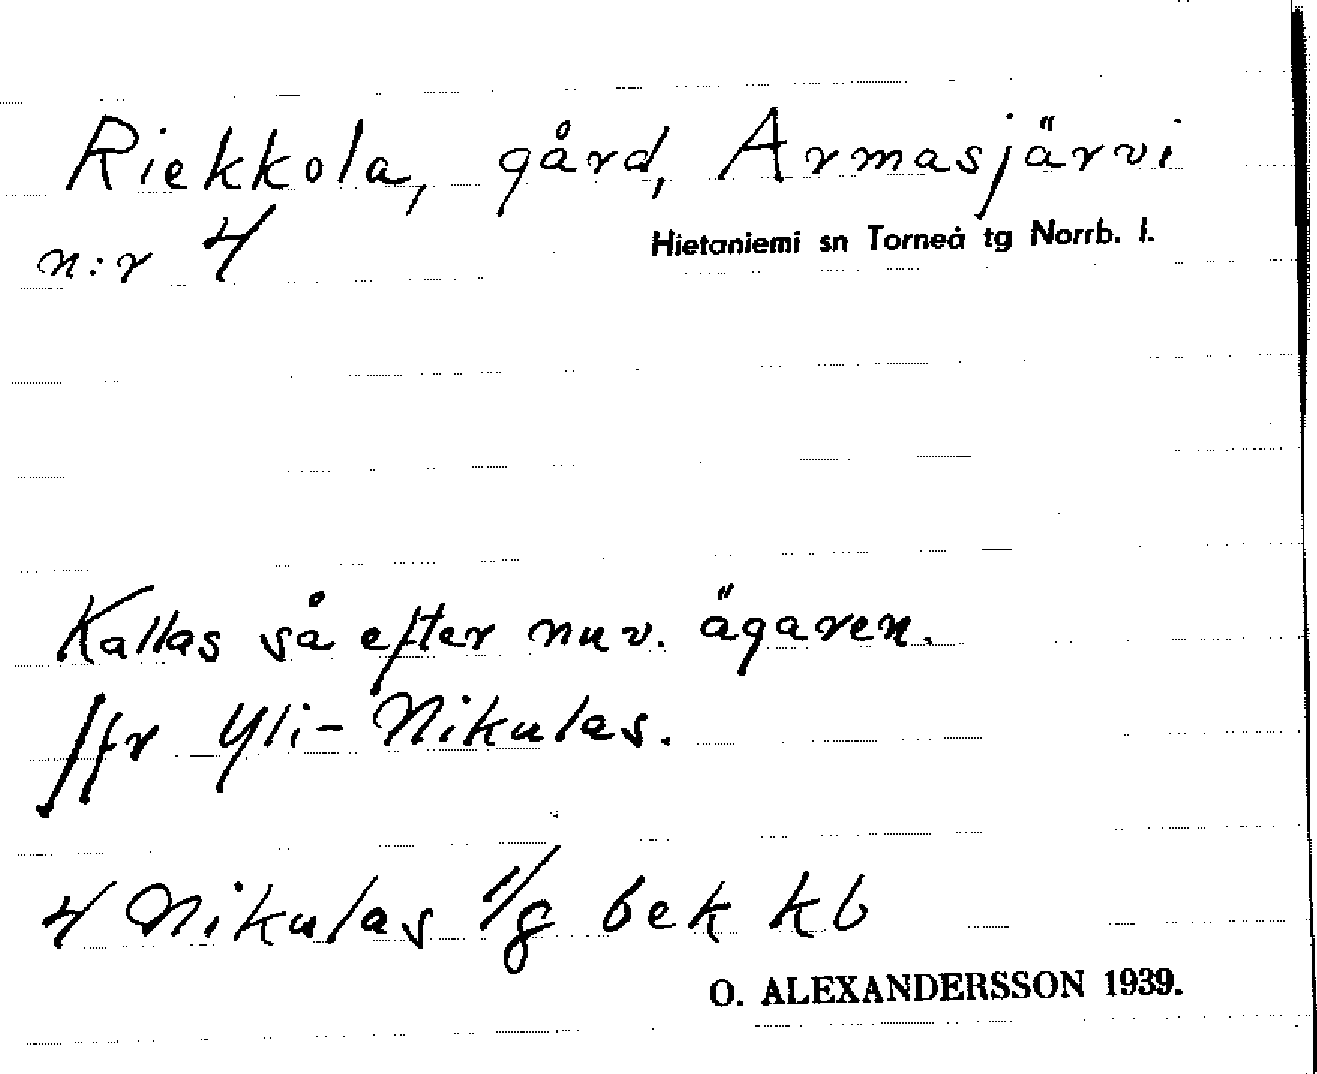 Riekkola, gård, Armasjärvi
n:r 4
Hietaniemi sn Torneå tg Norrb. l.
Kallas så efter nuv. ägaren.
Jfr Yli-Nikulas.
4 Nikulas 1/8 bek kb
O. ALEXANDERSSON 1939.